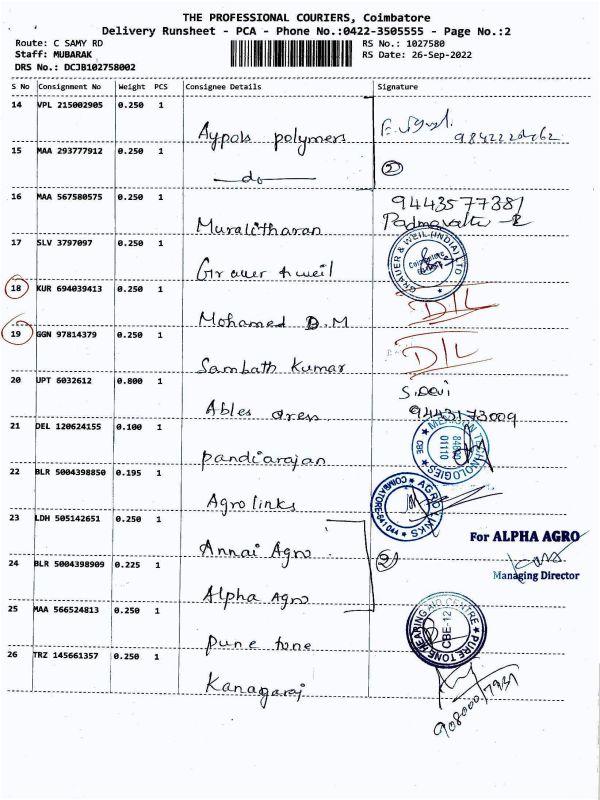 THE PROFESSIONAL COURIERS, Coimbatore
Delivery Runsheet - PCA - Phone No.:0422-3505555 - Page No.:2
Route: C SAMY RD
RS No.: 1027580
Staff: MUBARAK
RS Date: 26-Sep-2022
DRS No.: DCJB102758002
S No Consignment No Weight PCS Consignee Details Signature
14 VPL 215002905 0.250 1
Aypols polymers
15 MAA 293777912 0.250 1
do
2
16 MAA 567580575 0.250 1
Muralitharan
9443577381
17 SLV 3797097 0.250 1
Grauer & weil
GRAUER & WEIL (INDIA) LTD
18 KUR 694039413 0.250 1
Mohamed D.M
D/L
19 GGN 97814379 0.250 1
Sambath Kumar
D/L
20 UPT 6032612 0.800 1
Ables dress
S. Devi
9443173009
21 DEL 120624155 0.100 1
pandiarajan
TECHNOLOGIES
CBE
22 BLR 5004398850 0.195 1
Agro links
AGRO LINKS
COIMBATORE-641 044
23 LDH 505142651 0.250 1
Annai Agro
For ALPHA AGRO
24 BLR 5004398909 0.225 1
2
Managing Director
Alpha Agro
25 MAA 566524813 0.250 1
pune tone
PURE TONE HEARING AID CENTRE
CBE-12
26 TRZ 145661357 0.250 1
Kanagaraj